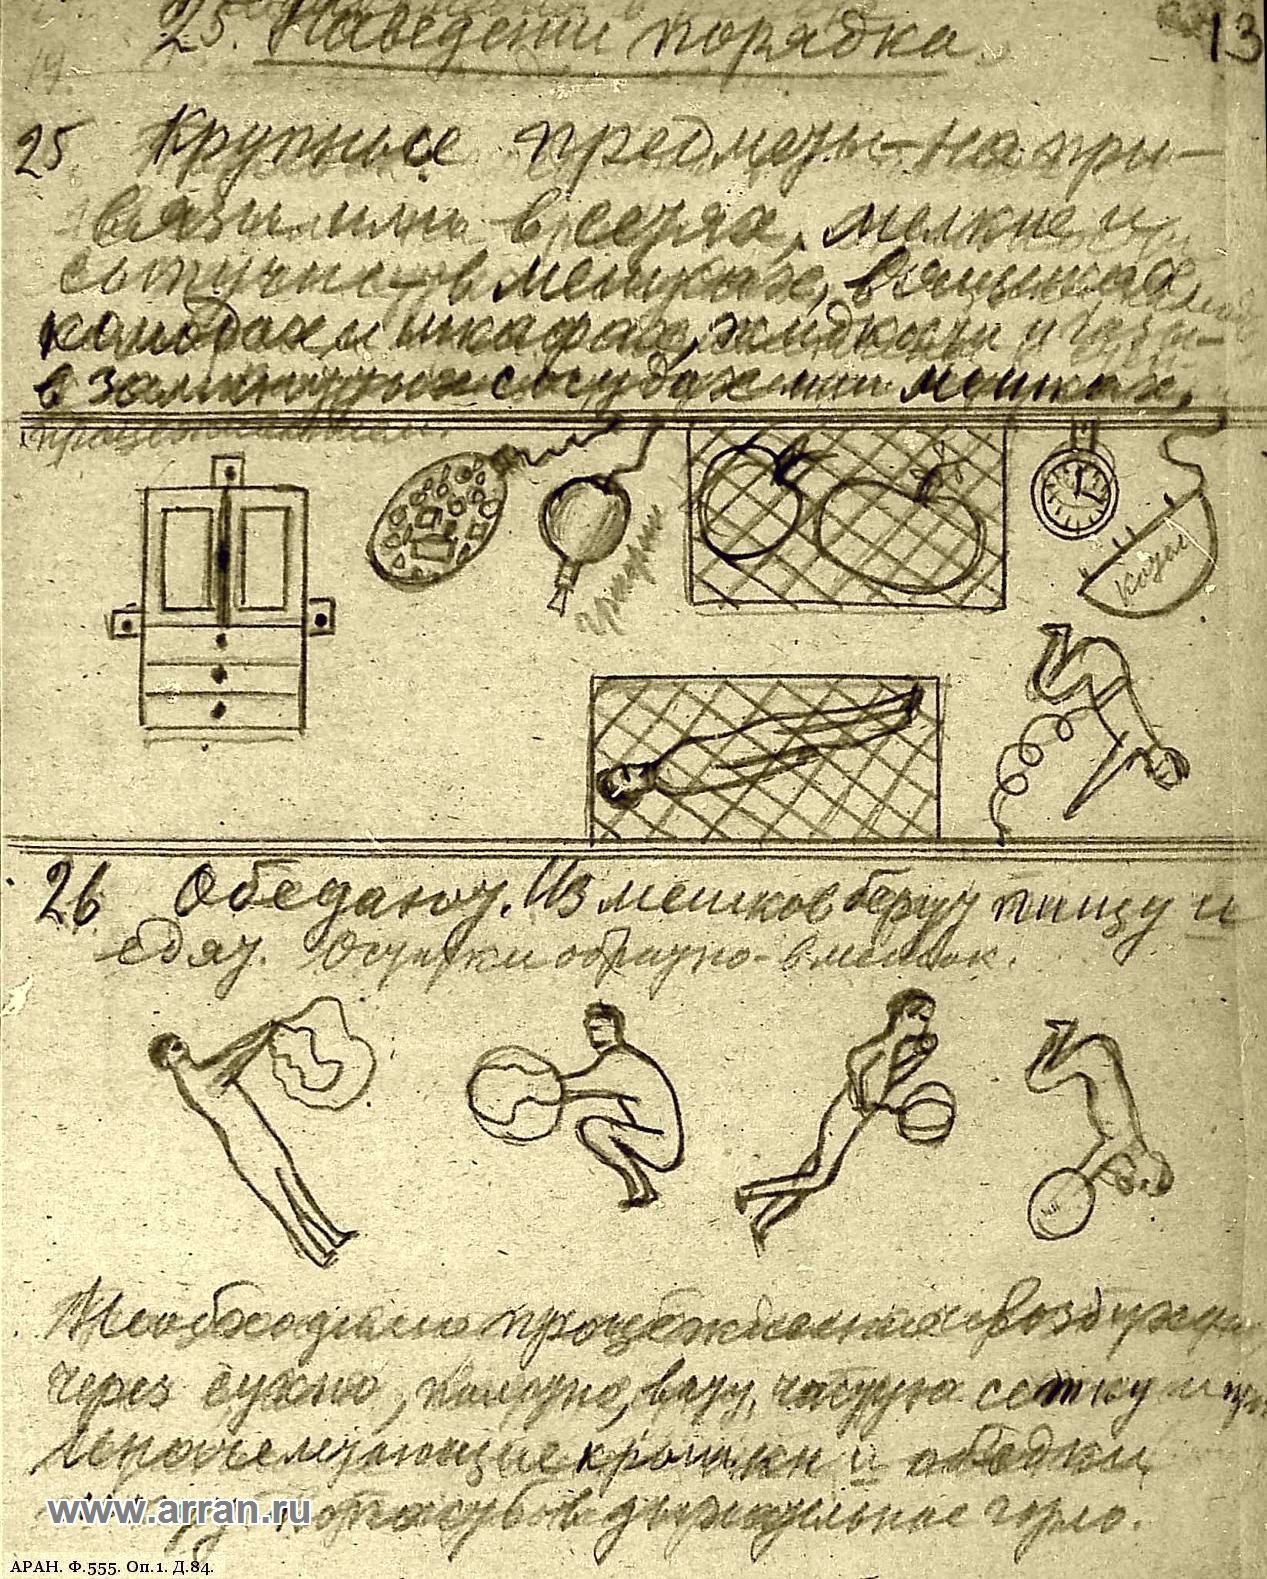 25. Наведение порядка
13
19.
25 Крупные предметы – на при-
вязи или в сетях, мелкие и
сыпучие – в мешках, в ящиках,
комодах и шкафах, жидкости и газы –
в замкнутых сосудах или мешках.
процеживанием.
Козы
26 Обедают. Из мешков берут пищу и
едят. Остатки обратно – в мешок.
Необходимо процеживание воздуха
через сукно, холодную, вату, частую сетку и
иначе летающие крошки и объедки
попасть в дыхательное горло.
www.arran.ru
АРАН. Ф.555. Оп.1. Д.84.